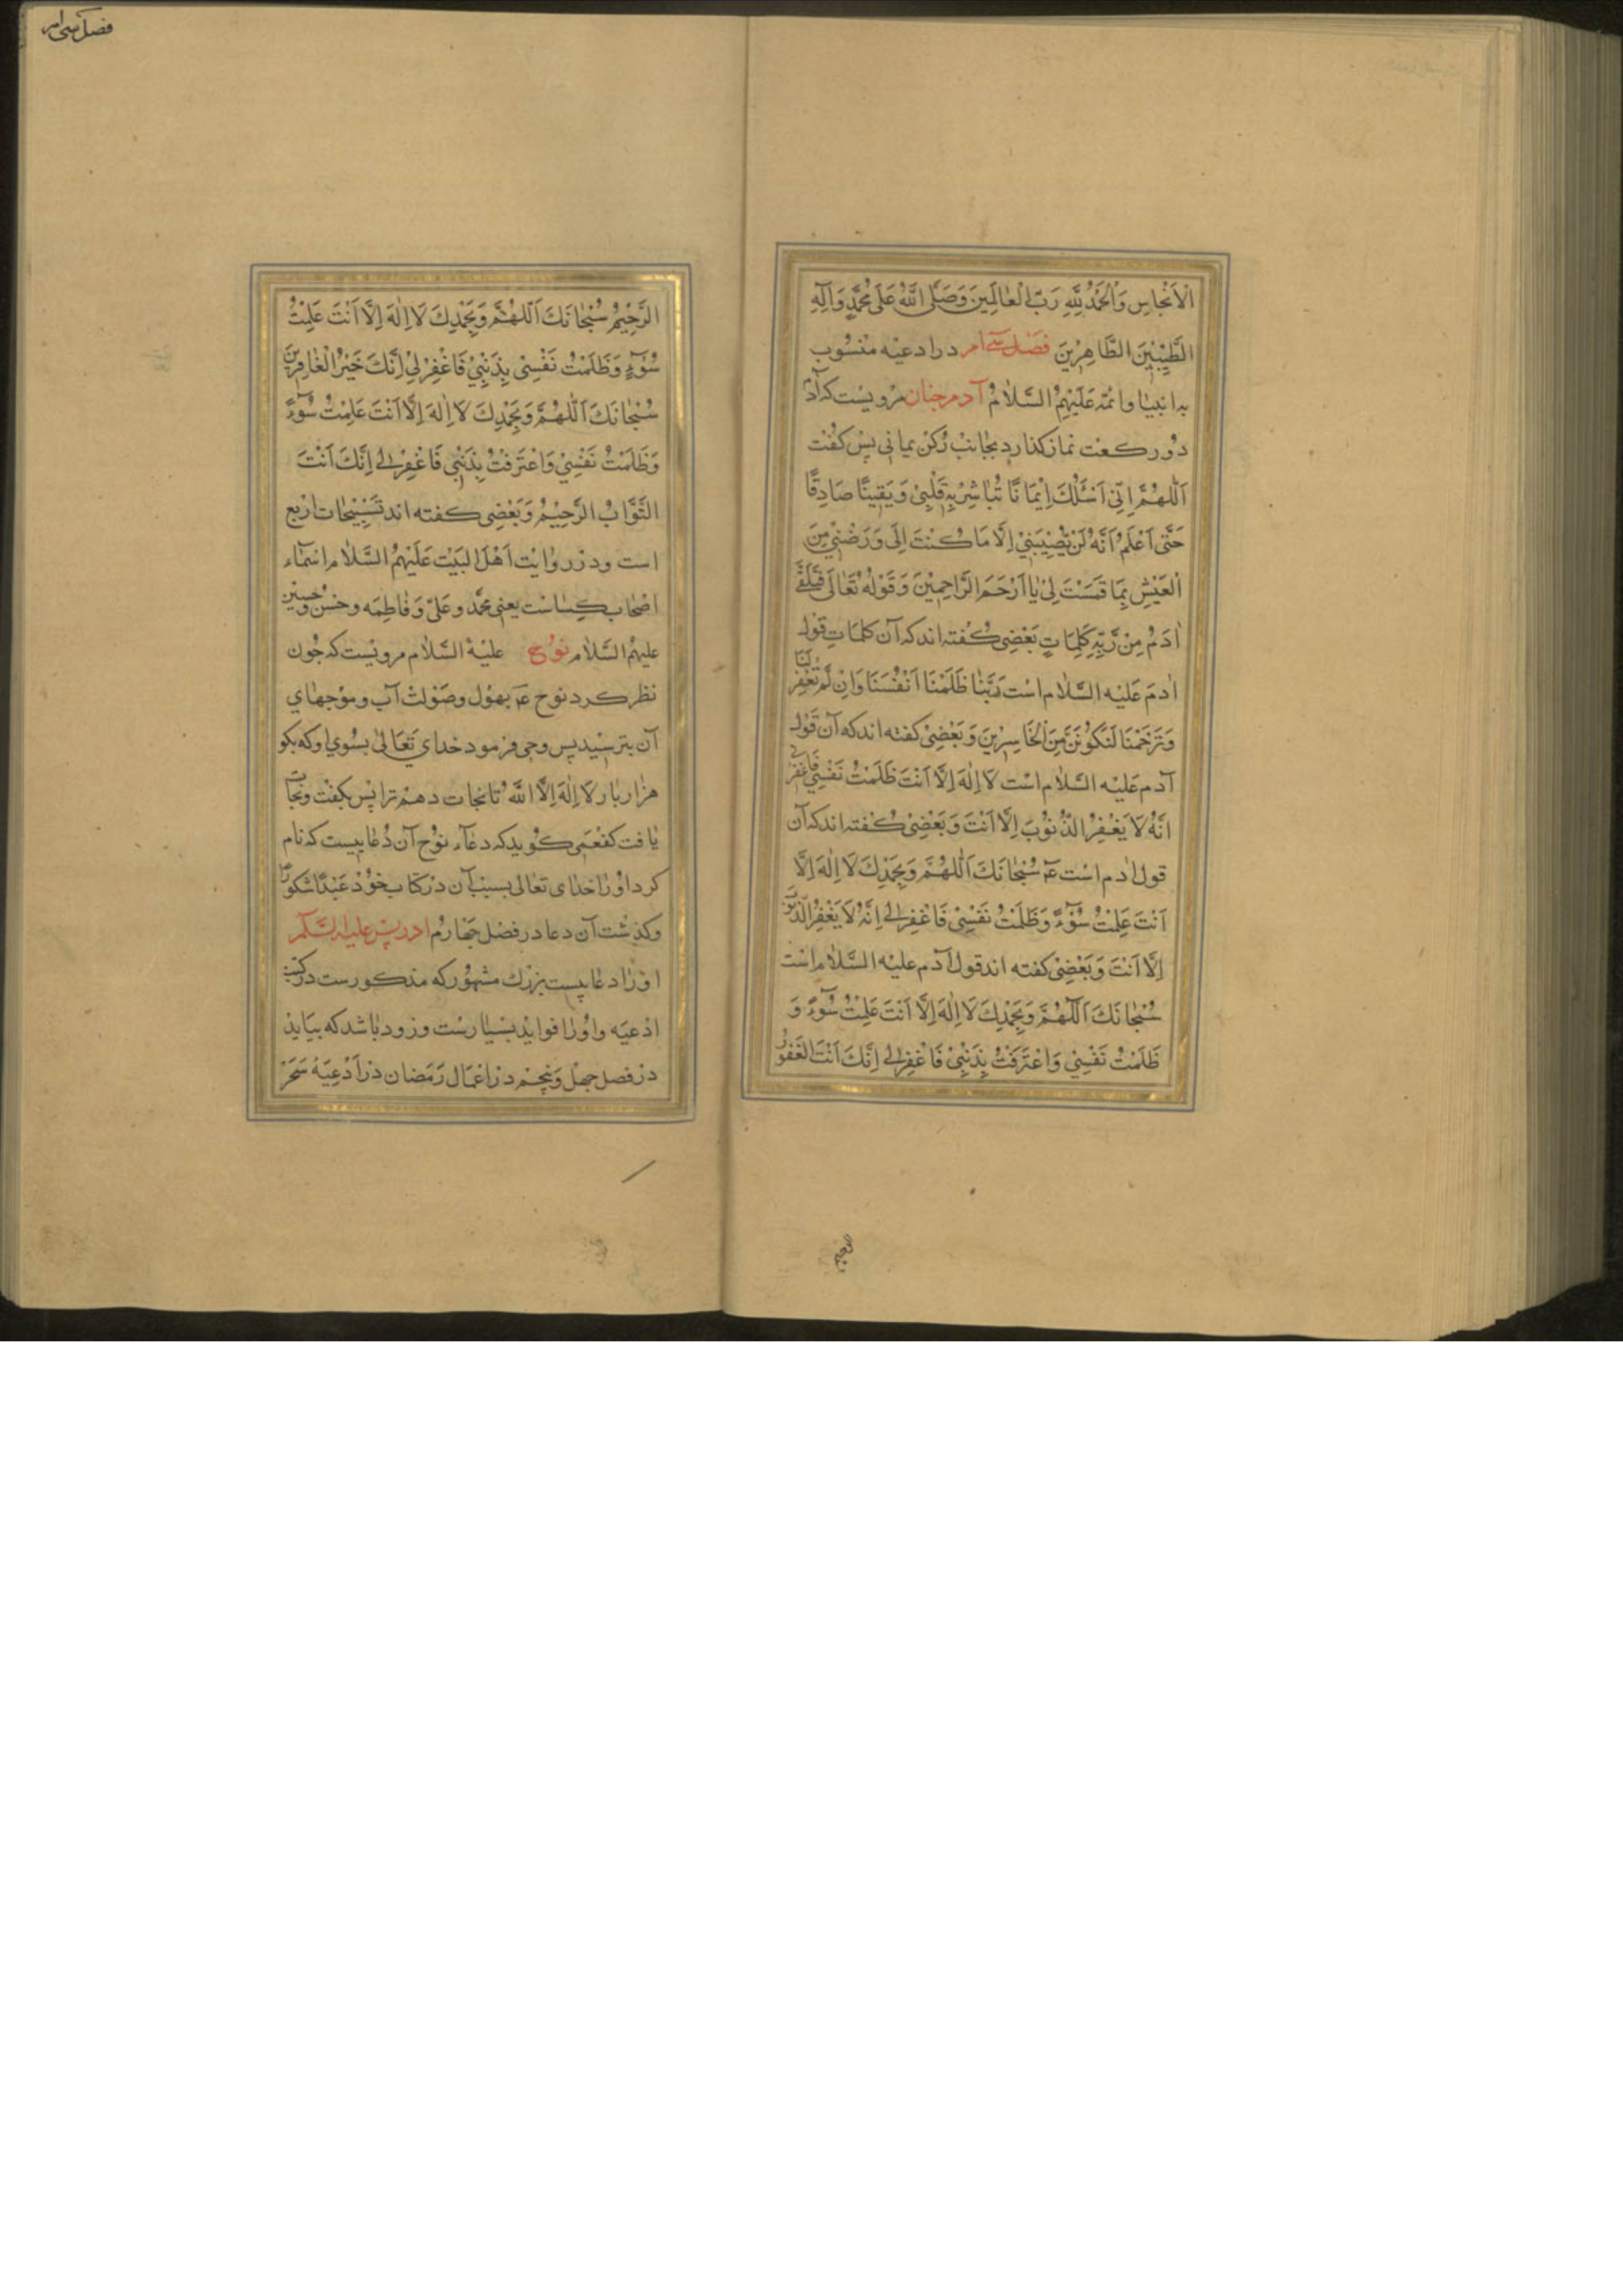 الْاَنْجاسِ وَالْحَمْدُ لِلّٰهِ رَبِّ الْعالَمِينَ وَصَلَّى اللّٰهُ عَلٰى مُحَمَّدٍ وَآلِهِ
الطَّيِّبِينَ الطَّاهِرِينَ فصل سی ام در ادعیه منسوب
به انبیا وائمّه عَلَيْهِمُ السَّلامُ آدم مرویست که آدم
دو رکعت نماز کذارد بجانب رکن یمانی پس کفت
اَللّٰهُمَّ اِنّى اَسْئَلُكَ اِيمَانًا تُبَاشِرُ بِهِ قَلْبِىْ وَيَقِينًا صَادِقًا
حَتّٰى اَعْلَمُ اَنَّهُ لَنْ يُصِيْبَنِىْ اِلَّا مَا كَتَبْتَ لِى وَرَضِّنِى مِنَ
الْعَيْشِ بِمَا قَسَمْتَ لِىْ يٰا اَرْحَمَ الرَّاحِمِيْنَ وَقَوْلُهُ تَعٰالٰى فَتَلَقّٰى
اٰدَمُ مِنْ رَبِّهِ كَلِمَاتٍ بَعْضِى کفته اند که آن کلمات قول
اٰدم عَلَيْهِ السَّلام است رَبَّنٰا ظَلَمْنَا اَنْفُسَنَا وَاِنْ لَمْ تَغْفِرْ لَنٰا
وَتَرْحَمْنَا لَنَكُونَنَّ مِنَ الْخَاسِرِينَ وَبَعْضِى کفته اند که آن قول
آدم عَلَيْه السَّلام است لَا اِلٰهَ اِلَّا اَنْتَ ظَلَمْتُ نَفْسِىْ فَاغْفِرْ لى
اِنَّهُ لَا يَغْفِرُ الذُّنُوْبَ اِلَّا اَنْتَ وَبَعْضِى کفته اند که آن
قول اٰدم است عم سُبْحٰانَكَ اَللّٰهُمَّ وَبِحَمْدِكَ لَا اِلٰهَ اِلَّا
اَنْتَ عَمِلْتُ سُوْءً وَظَلَمْتُ نَفْسِىْ فَاغْفِرْ لِى اِنَّهُ لَا يَغْفِرُ الذُّنُوبَ
اِلَّا اَنْتَ وَبَعْضِى کفته اند قول آدم عليه السَّلام است
سُبْحٰانَكَ اَللّٰهُمَّ وَبِحَمْدِكَ لَا اِلٰهَ اِلَّا اَنْتَ عَمِلْتُ سُوْءً وَ
ظَلَمْتُ نَفْسِىْ وَاعْتَرَفْتُ بِذَنْبِىْ فَاغْفِرْ لِى اِنَّكَ اَنْتَ الْغَفُورُ
الرَّحِيْمُ
فصل سی ام
الرَّحِيْمُ سُبْحٰانَكَ اَللّٰهُمَّ وَبِحَمْدِكَ لَا اِلٰهَ اِلَّا اَنْتَ عَمِلْتُ
سُوْءً وَظَلَمْتُ نَفْسِىْ بِذَنْبِىْ فَاغْفِرْ لِىْ اِنَّكَ خَيْرُ الْغٰافِرِينَ
سُبْحٰانَكَ اَللّٰهُمَّ وَبِحَمْدِكَ لَا اِلٰهَ اِلَّا اَنْتَ عَمِلْتُ سُوْءً
وَظَلَمْتُ نَفْسِىْ وَاعْتَرَفْتُ بِذَنْبِى فَاغْفِرْ لِى اِنَّكَ اَنْتَ
التَّوَّابُ الرَّحِيْمُ وَبَعْضِى کفته اند تَسْبِيْحَاتِ اربع
است ودر روایت اَهْل البَيْت عَلَيْهِمُ السَّلام اسمآء
اصحاب کساست یعنی محمّد وعلىّ وَفٰاطِمَه وحسن وحسین
عليهمُ السَّلام نوح علَيْهُ السَّلام مرویست که چون
نظر کرد نوح عم بهول وصولت آب وموجهای
آن بترسید پس وحی فرمود خدای تَعَالٰى بسوی او که بکو
هزار بار لَا اِلٰهَ اِلَّا اللّٰهُ تا نجات دهم ترا پس بکفت ونجات
یافت کفعمی کوید که دعآء نوح آن دُعاییست که نام
کرد او را خدای تعالی بسبب آن در کتاب خود عَبْدًا شَكُورًا
وکذشت آن دعا در فصل چهارم ادریس علیه السّلم
او را دعاییست بزرك مشهور که مذکورست در کتب
ادعیه واو را فواید بسیارست وزود باشد که بیاید
در فصل چهل وپنجم در اعمال رمضان در اَدْعِيَهٔ سَحَر